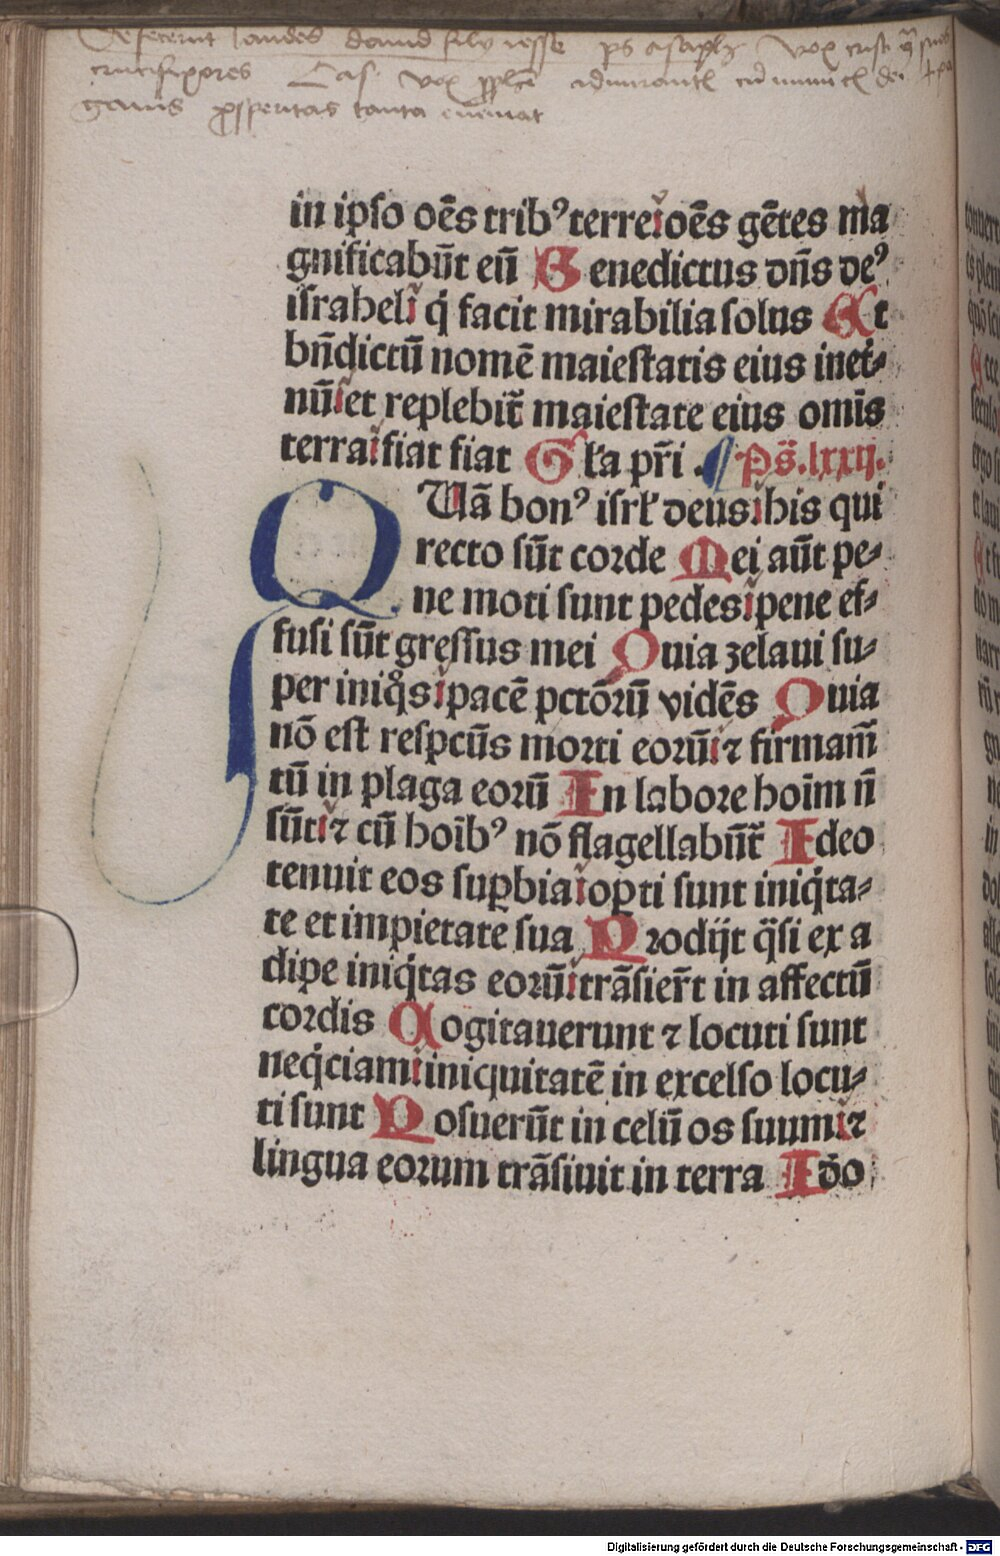 Defecerunt laudes dauid filij iesse ps asaph vox cristi
crucifixores Cas. vox admirantis cum inimicis dei
prosperitas tanta eueniat
in ipſo oēs tribꝰ terre oēs gētes ma
gnificabūt eū Benedictus dn̄s deꝰ
iſrahel q̇ facit mirabilia ſolus Et
bn̄dictū nomē maieſtatis eius inet⸗
nū et replebit̄ maieſtate eius omīs
terra fiat fiat Gl̄a pr̄i . ¶ Ps̄. lxxij.
QUā bonꝰ iſrl̄ deus his qui
recto ſūt corde Mei aūt pe⸗
ne moti ſunt pedes pene ef⸗
fuſi ſūt greſſus mei Quia zelaui ſu⸗
per iniq̊s pacē pctōrū vidēs Quia
nō eſt reſpcūs morti eorū ⁊ firmam̄
tū in plaga eorū In labore hoīm n̄
ſūt ⁊ cū hoībꝰ nō flagellabūt̄ Ideo
tenuit eos ſuꝑbia oꝑti ſunt iniq̇ta⸗
te et impietate ſua Prodijt q̄ſi ex a
dipe iniq̇tas eorū trāſier̄t in affectū
cordis Cogitauerunt ⁊ locuti ſunt
neq̇ciam iniquitatē in excelſo locu⸗
ti ſunt Poſuerūt in celū os ſuum ⁊
lingua eorum trāſiuit in terra Idō
Digitalisierung gefördert durch die Deutsche Forschungsgemeinschaft - DFG